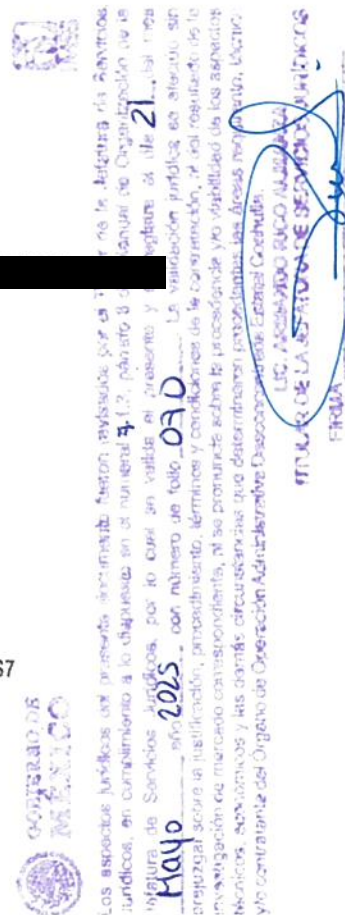 67
GOBIERNO DE
MÉXICO
Los aspectos jurídicos del presente documento fueron revisados por el Titular de la Jefatura de Servicios
Jurídicos, en cumplimiento a lo dispuesto en el numeral 7.1.3, párrafo 8 del Manual de Organización de la
Jefatura de Servicios Jurídicos, por lo cual se valida el presente y se registra al día 21 del mes
Mayo año 2025 con número de folio 070 La validación jurídica se efectúa sin
prejuzgar sobre la justificación, procedimiento, términos y condiciones de la contratación, ni del resultado de la
investigación de mercado correspondiente, ni se pronuncia sobre la procedencia y/o viabilidad de los aspectos
técnicos, económicos y las demás circunstancias que determinaron procedentes las áreas requirente, técnica
y/o contratante del Órgano de Operación Administrativa Desconcentrada Estatal Coahuila
LIC. RICO
TITULAR DE LA JEFATURA DE SERVICIOS JURÍDICOS
FIRMA